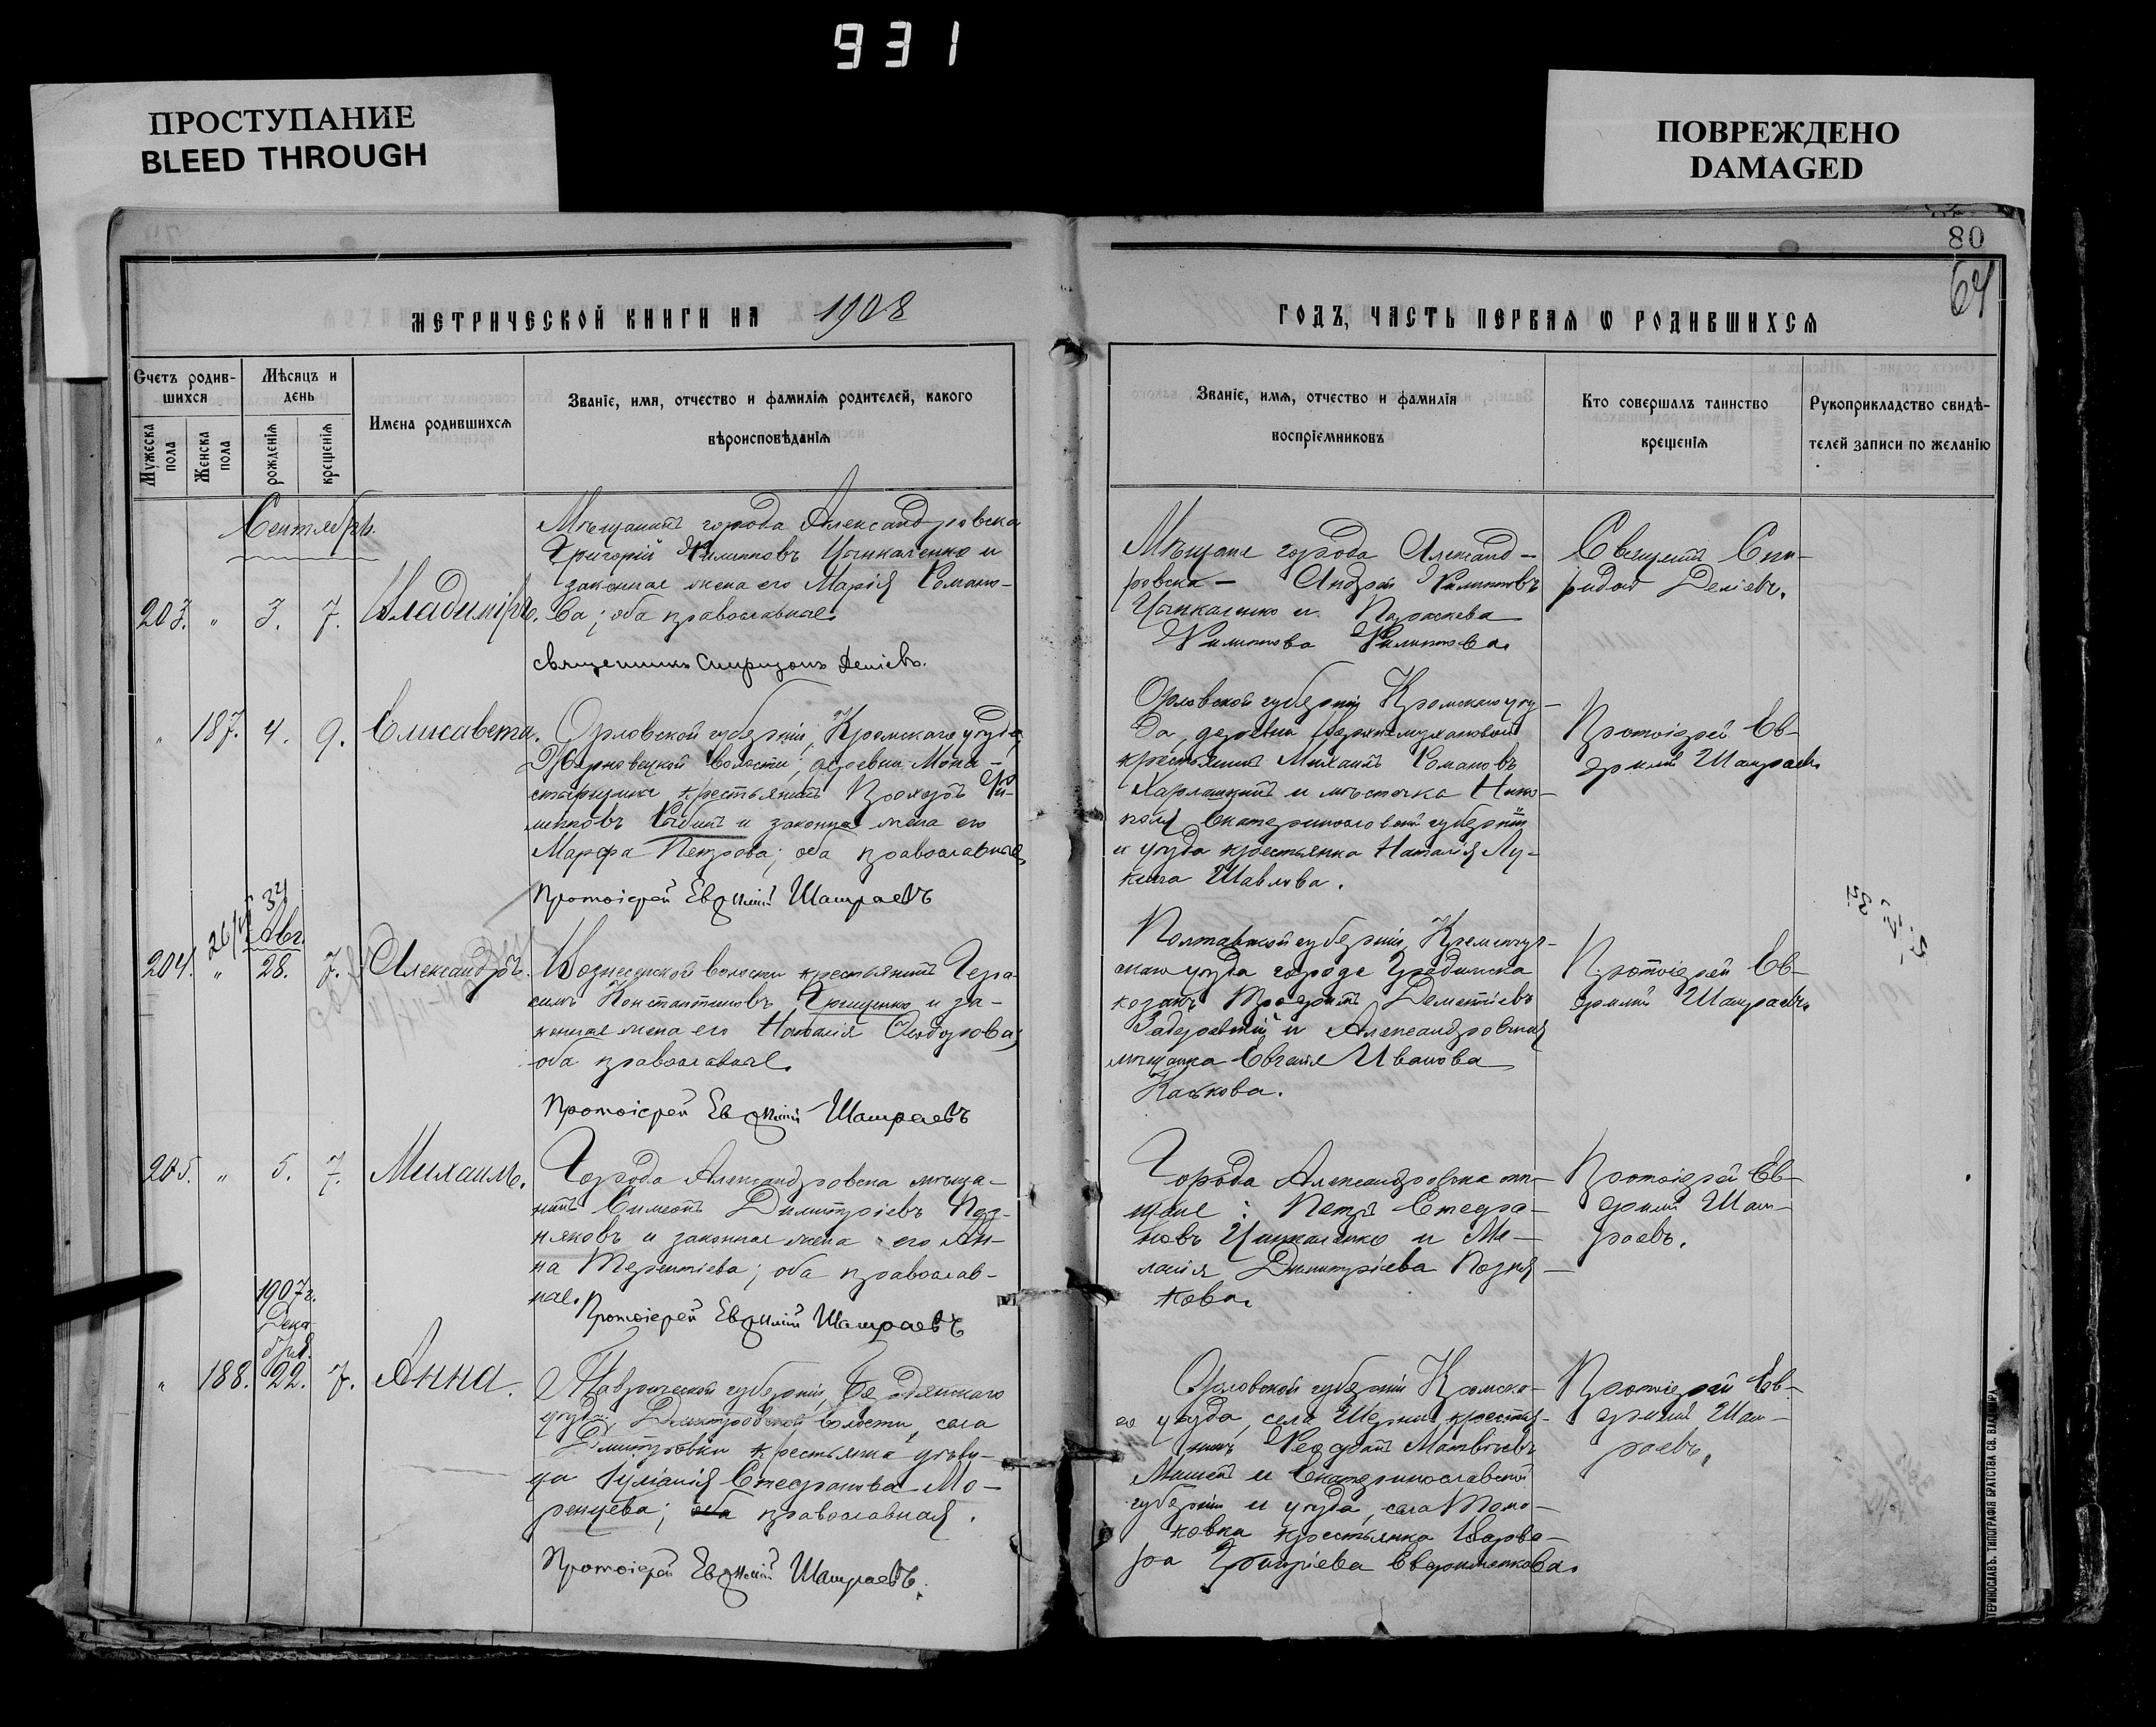 931
ПРОСТУПАНИЕ
BLEED THROUGH
ПОВРЕЖДЕНО
DAMAGED
80
64
МЕТРИЧЕСКОЙ КНИГИ НА 1908
ГОДЪ, ЧАСТЬ ПЕРВАЯ Ѡ РОДИВШИХСЯ
Счетъ родив-
шихся
Мѣсяцъ и
день
Мужеска
пола
Женска
пола
рожденія
крещенія
Имена родившихся
Званіе, имя, отчество и фамилія родителей, какого
вѣроисповѣданія
Званіе, имя, отчество и фамилія
воспріемниковъ
Кто совершалъ таинство
крещенія
Рукоприкладство свидѣ-
телей записи по желанію
Сентябрь.
203. " 3. 7. Владиміръ.
Мѣщанинъ города Александровска
Григорій Филипповъ Цыпкаленко и
законная жена его Марія Романо-
ва; оба православные.
Священникъ Спиридонъ Деліевъ.
Мѣщане города Александ-
ровска - Андрей Филипповъ
Цыпкаленко и Параскева
Филиппова Филиппова.
Священ. Спи-
ридон Деліевъ.
" 187. 4. 9. Елисавета.
Орловской губерніи, Кромскаго уѣзда,
волости, деревни Мона-
стырщина крестьянинъ Прохоръ Фи-
липповъ и законная жена его
Марфа Петрова; оба православные.
Протоіерей Евфимій Шатраевъ
Орловской губерніи Кромскаго уѣз-
да, деревни
крестьянинъ Михаилъ Романовъ
и мѣстечка Нико-
поля Екатеринославской губерніи
и уѣзда крестьянка Наталія Лу-
кина Шавлова.
Протоіерей Ев-
фимій Шатраевъ.
Авг.
204. " 28. 7. Александръ.
Вознесенской волости крестьянинъ Гера-
симъ Константиновъ Грищенко и за-
конная жена его Наталія Ѳеодорова;
оба православные.
Протоіерей Евфимій Шатраевъ
Полтавской губерніи, Кременчуг-
скаго уѣзда города Градижска
козакъ Трофимъ Дементіевъ
и Александровская
мѣщанка Иванова
Каськова.
Протоіерей Ев-
фимій Шатраевъ.
205. " 5. 7. Михаилъ.
Города Александровска мѣща-
нинъ Симеонъ Димитріевъ Поз-
няковъ и законная жена его Ан-
на Терентіева; оба православ-
ные.
Протоіерей Евфимій Шатраевъ
Города Александровска мѣ-
щане: Петръ Стефа-
новъ Цыпкаленко и Ме-
ланія Димитріева Позня-
кова.
Протоіерей Ев-
фимій Шат-
раевъ.
1907 г.
Дека-
бря.
" 188. 22. 7. Анна.
Таврической губерніи, Бердянскаго
уѣзда, Дмитровской волости, села
Дмитровки крестьянка дѣви-
ца Іуліанія Стефанова Мо-
ренцева; оба православная.
Протоіерей Евфимій Шатраевъ.
Орловской губерніи Кромска-
го уѣзда, села крестья-
нинъ Матвѣевъ
и Екатеринославской
губерніи и уѣзда, села Томо-
ковка крестьянка Варва-
ра Григоріева
Протоіерей Ев-
фимій Шат-
раевъ.
ТИПОГРАФІЯ БРАТСТВА СВ. ВЛАДИМІРА